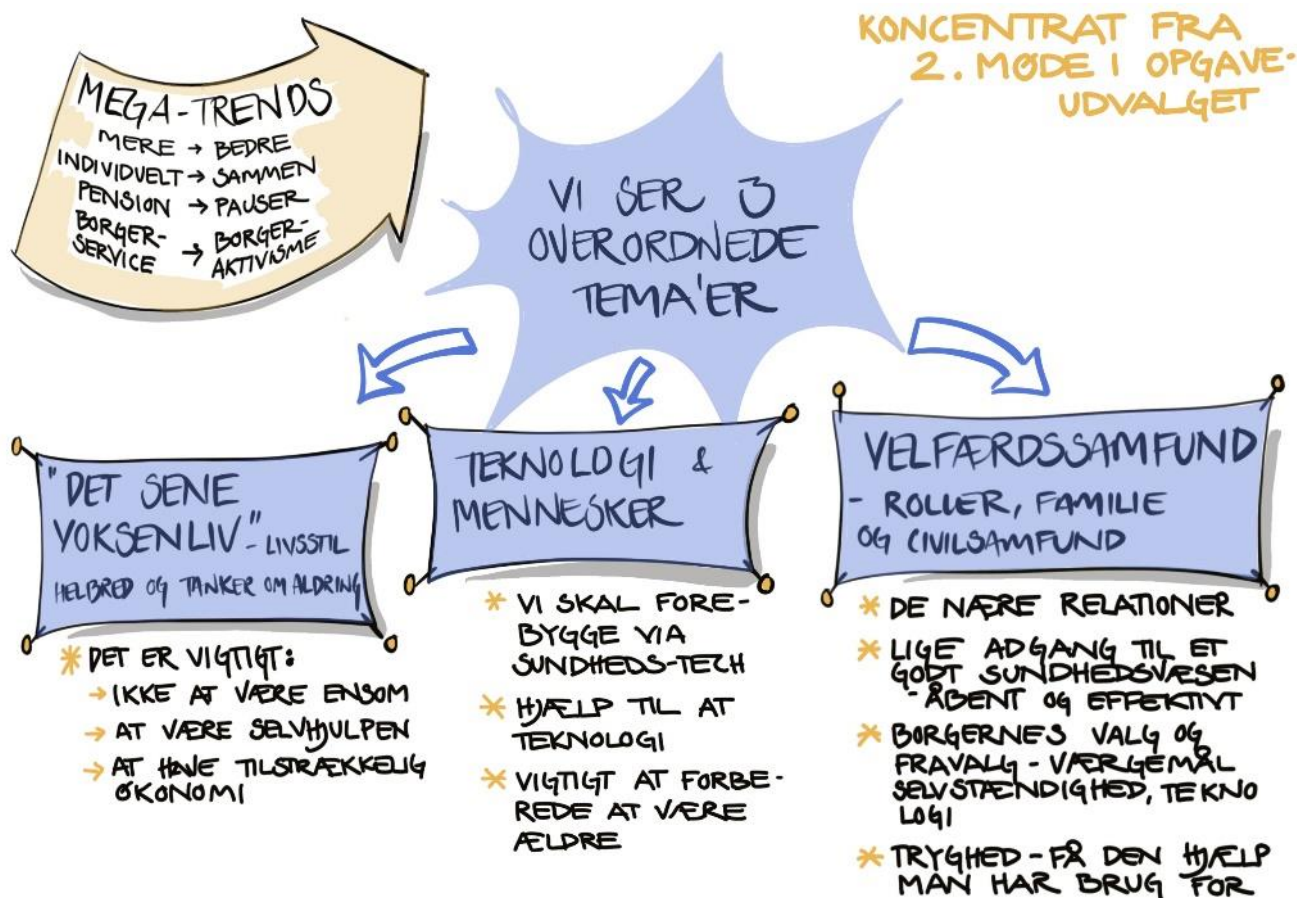 KONCENTRAT FRA
2. MØDE I OPGAVE-
UDVALGET
MEGA-TRENDS
MERE → BEDRE
INDIVIDUELT → SAMMEN
PENSION → PAUSER
BORGER-
SERVICE → BORGER-
AKTIVISME
VI SER 3
OVERORDNEDE
TEMA'ER
"DET SENE
VOKSENLIV" - LIVSSTIL
HELBRED OG TANKER OM ALDRING
* DET ER VIGTIGT:
→ IKKE AT VÆRE ENSOM
→ AT VÆRE SELVHJULPEN
→ AT HAVE TILSTRÆKKELIG
ØKONOMI
TEKNOLOGI &
MENNESKER
* VI SKAL FORE-
BYGGE VIA
SUNDHEDS-TECH
* HJÆLP TIL AT
TEKNOLOGI
* VIGTIGT AT FORBE-
REDE AT VÆRE
ÆLDRE
VELFÆRDSSAMFUND
- ROLLER, FAMILIE
OG CIVILSAMFUND
* DE NÆRE RELATIONER
* LIGE ADGANG TIL ET
GODT SUNDHEDSVÆSEN
- ÅBENT OG EFFEKTIVT
* BORGERNES VALG OG
FRAVALG - VÆRGEMÅL
SELVSTÆNDIGHED, TEKNO
LOGI
* TRYGHED - FÅ DEN HJÆLP
MAN HAR BRUG FOR